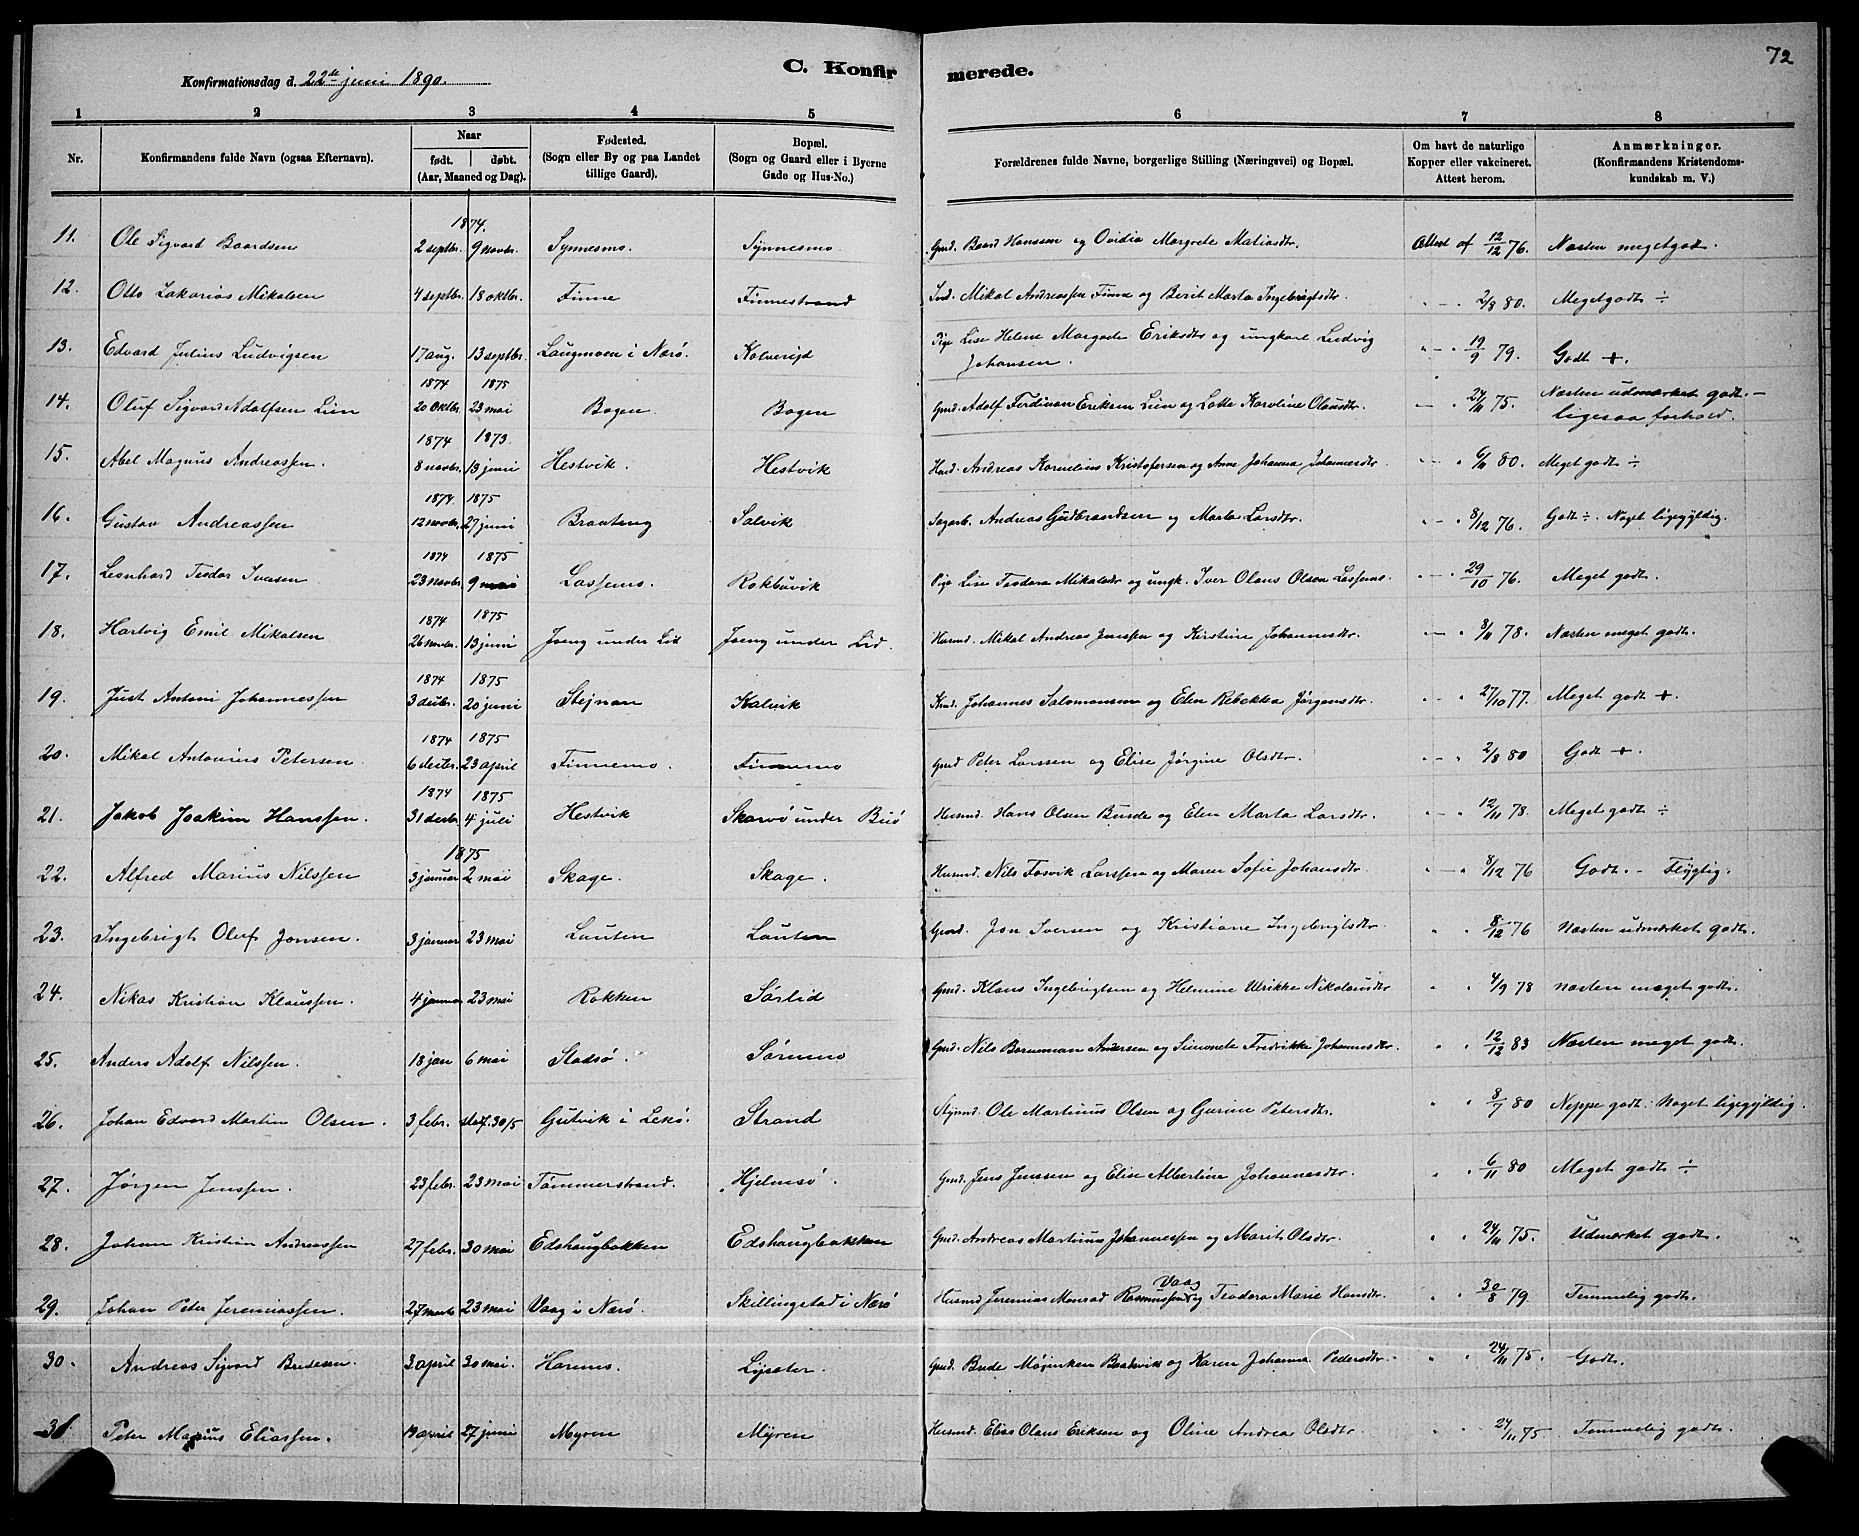 72
Konfirmationsdag d. 22de juni 1890.
C. Konfirmerede.
1 2 3 4 5 6 7 8
Nr. Konfirmandens fulde Navn (ogsaa Efternavn). Naar født. døbt. (Aar, Maaned og Dag). Fødested. (Sogn eller By og paa Landet tillige Gaard). Bopæl. (Sogn og Gaard eller i Byerne Gade og Hus-No.) Forældrenes fulde Navne, borgerlige Stilling (Næringsvei) og Bopæl. Om havt de naturlige Kopper eller vakcineret. Attest herom. Anmærkninger. (Konfirmandens Kristendomskundskab m. V.)
1874.
11. Ole Sigvard Baardsen 2 septbr. 9 novbr. Synnesmo. Synnesmo. Gmd. Baard Hanssen og Ovidia Margrete Matiasdtr. Attest af 12/12 76. Næsten meget godt.
12. Otto Zakarias Mikalsen 4 septbr. 18 oktbr. Finne Finnestrand Ind. Mikal Andreassen Finne og Berit Marta Ingebrigtsdtr. " - " 2/8 80. Meget godt ÷
13. Edvard Julius Ludvigsen 17 aug. 13 septbr. Laugmoen i Nærø. Kolvereid Pige Lise Helene Margrete Eriksdtr og ungkarl Ludvig Johansen. " - " 19/9 79. Godt +.
1874 1875
14. Oluf Sigvard Adolfsen Lien 20 oktbr. 23 mai Bogen. Bogen Gmd. Adolf Ferdinan Eriksen Lien og Lotte Karoline Olausdtr. - " 24/11 75. Næsten udmærket godt. - ligesaa forhold.
1874 1873.
15. Abel Magnus Andreassen. 8 novbr. 13 juni Hestvik. Hestvik Husd. Andreas Kornelius Kristofersen og Anne Johanna Johannesdtr - " 6/11 80. Meget godt ÷
1874. 1875
16. Gustav Andreassen 12 novbr. 27 juni Braateng Solvik Sagarb. Andreas Gudbrandsen og Marta Larsdtr. " - " 8/12 76. Godt ÷. Noget ligegyldig.
1874 1875
17. Leonhard Teodor Iversen 23 novbr 9 mai Lassemo. Rokbuvik Pige Lise Teodora Mikalsdtr og ungk. Iver Olaus Olsen Lassemo. " - " 29/10 76. Meget godt.
1874 1875
18. Hartvig Emil Mikalsen 26 novbr. 13 juni Joeng under Lid Joeng under Lid. Husmd. Mikal Andreas Jenssen og Kirstine Johannesdtr. - " 8/11 78. Næsten meget godt.
1874 1875
19. Just Antoni Johannessen 3 decbr. 20 juni Stejnan Kalvik Gmd. Johannes Salomonsen og Elen Rebekka Jørgensdtr. " - " 27/10 77. Meget godt +.
1874 1875
20. Mikal Antonius Petersen 6 decbr. 23 april Finnemo. Finnemo Gmd Peter Larssen og Elise Jørgine Olsdtr. " - " 2/8 80 Godt +.
1874 1875
21. Jakob Joakim Hanssen. 31 decbr. 4 juli Hestvik Skarvø under Buø Husmd. Hans Olsen Bunde og Elen Marta Larsdtr. " - " 12/11 78. Meget godt ÷
1875
22. Alfred Marius Nilssen 3 januar 2 mai Skage. Skage. Husmd. Nils Fosvik Larssen og Maren Sofie Johansdtr " - " 8/12 76 Godt. - Flygtig.
23. Ingebrigt Oluf Jonsen. 3 januar 23 mai Lauten Lauten Gmd. Jon Iversen og Kristiane Ingebrigtsdtr. " " 8/12 76 Næsten udmærket godt.
24. Nikas Kristian Klaussen. 4 januar 23 mai Rokken Sørlid Gmd. Klaus Ingebrigtsen og Helmine Ulrikke Nikolausdtr " " 4/9 78 Næsten meget godt.
25. Anders Adolf Nilssen. 18 jan 6 mai Stadsø. Sørumo Gmd. Nils Bornuman Andersen og Simonete Fredrikke Johannesdtr. " " 12/12 83 Næsten meget godt.
26. Johan Edvard Martin Olsen. 3 febr. stadf. 30/5 Gutvik i Lekø. Strand Styrmd. Ole Martinus Olsen og Gurine Petersdtr. " " 8/7 80 Neppe godt. Noget ligegyldig.
27. Jørgen Jenssen. 23 febr. 23 mai Tømmerstrand. Hjelmsø. Gmd. Jens Jenssen og Elise Albertine Johannesdtr. " " 6/11 80 Meget godt ÷
28. Johan Kristian Andreassen 27 febr. 30 mai Edshaugbakken Edshaugbakken Gmd. Andreas Martinus Johannessen og Marit Olsdtr. " " 24/11 75. Udmærket godt.
29. Johan Peter Jeremiassen. 27 marts 23 mai Vaag i Nærø. Skillingstad i Nærø Husmd Jeremias Monrad Rasmussen Vaag og Teodora Marie Hansdtr. " " 30/8 79 Temmelig godt.
30. Andreas Sigvard Bredesen. 3 april 30 mai. Haremo. Lysater. Gmd. Brede Møjniken Baatvik og Karen Johanna Pedersdtr. " " 24/11 75. Godt.
31. Peter Marius Eliassen. 19 april 27 juni Myren Myren Husmd. Elias Olaus Eriksen og Oline Andrea Olsdtr. " " 24/11 75 Temmelig godt.